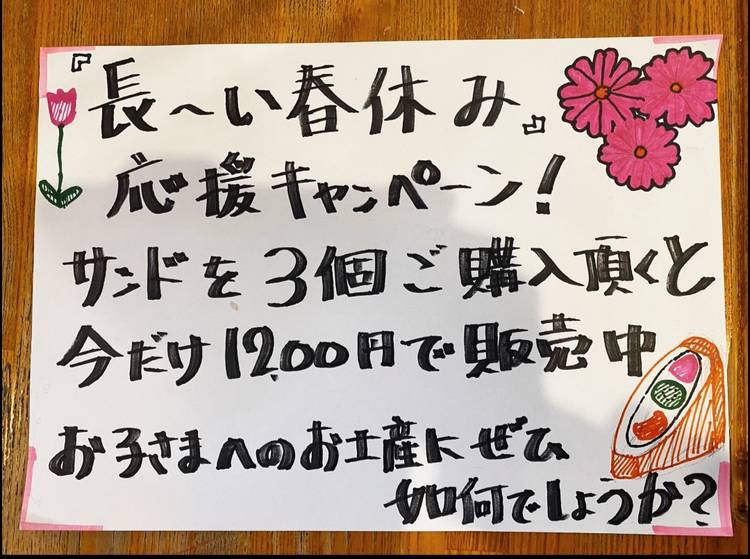 『長〜い春休み』
応援キャンペーン!
サンドを3個ご購入頂くと
今だけ1200円で販売中
お子さまへのお土産にぜひ
如何でしょうか?